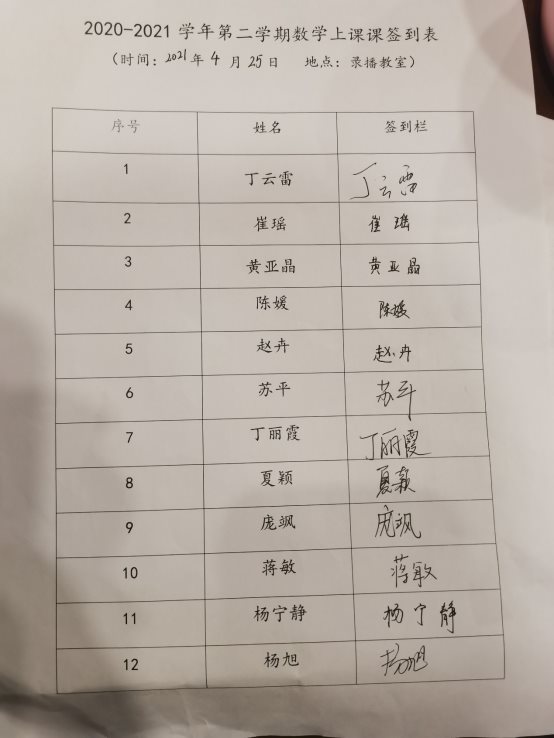 2020-2021 学年第二学期数学上课课签到表
（时间：2021年 4 月 25 日 地点：录播教室）
序号 姓名 签到栏
1 丁云雷 丁云雷
2 崔瑶 崔瑶
3 黄亚晶 黄亚晶
4 陈媛 陈媛
5 赵卉 赵卉
6 苏平 苏平
7 丁丽霞 丁丽霞
8 夏颖 夏颖
9 庞飒 庞飒
10 蒋敏 蒋敏
11 杨宁静 杨宁静
12 杨旭 杨旭